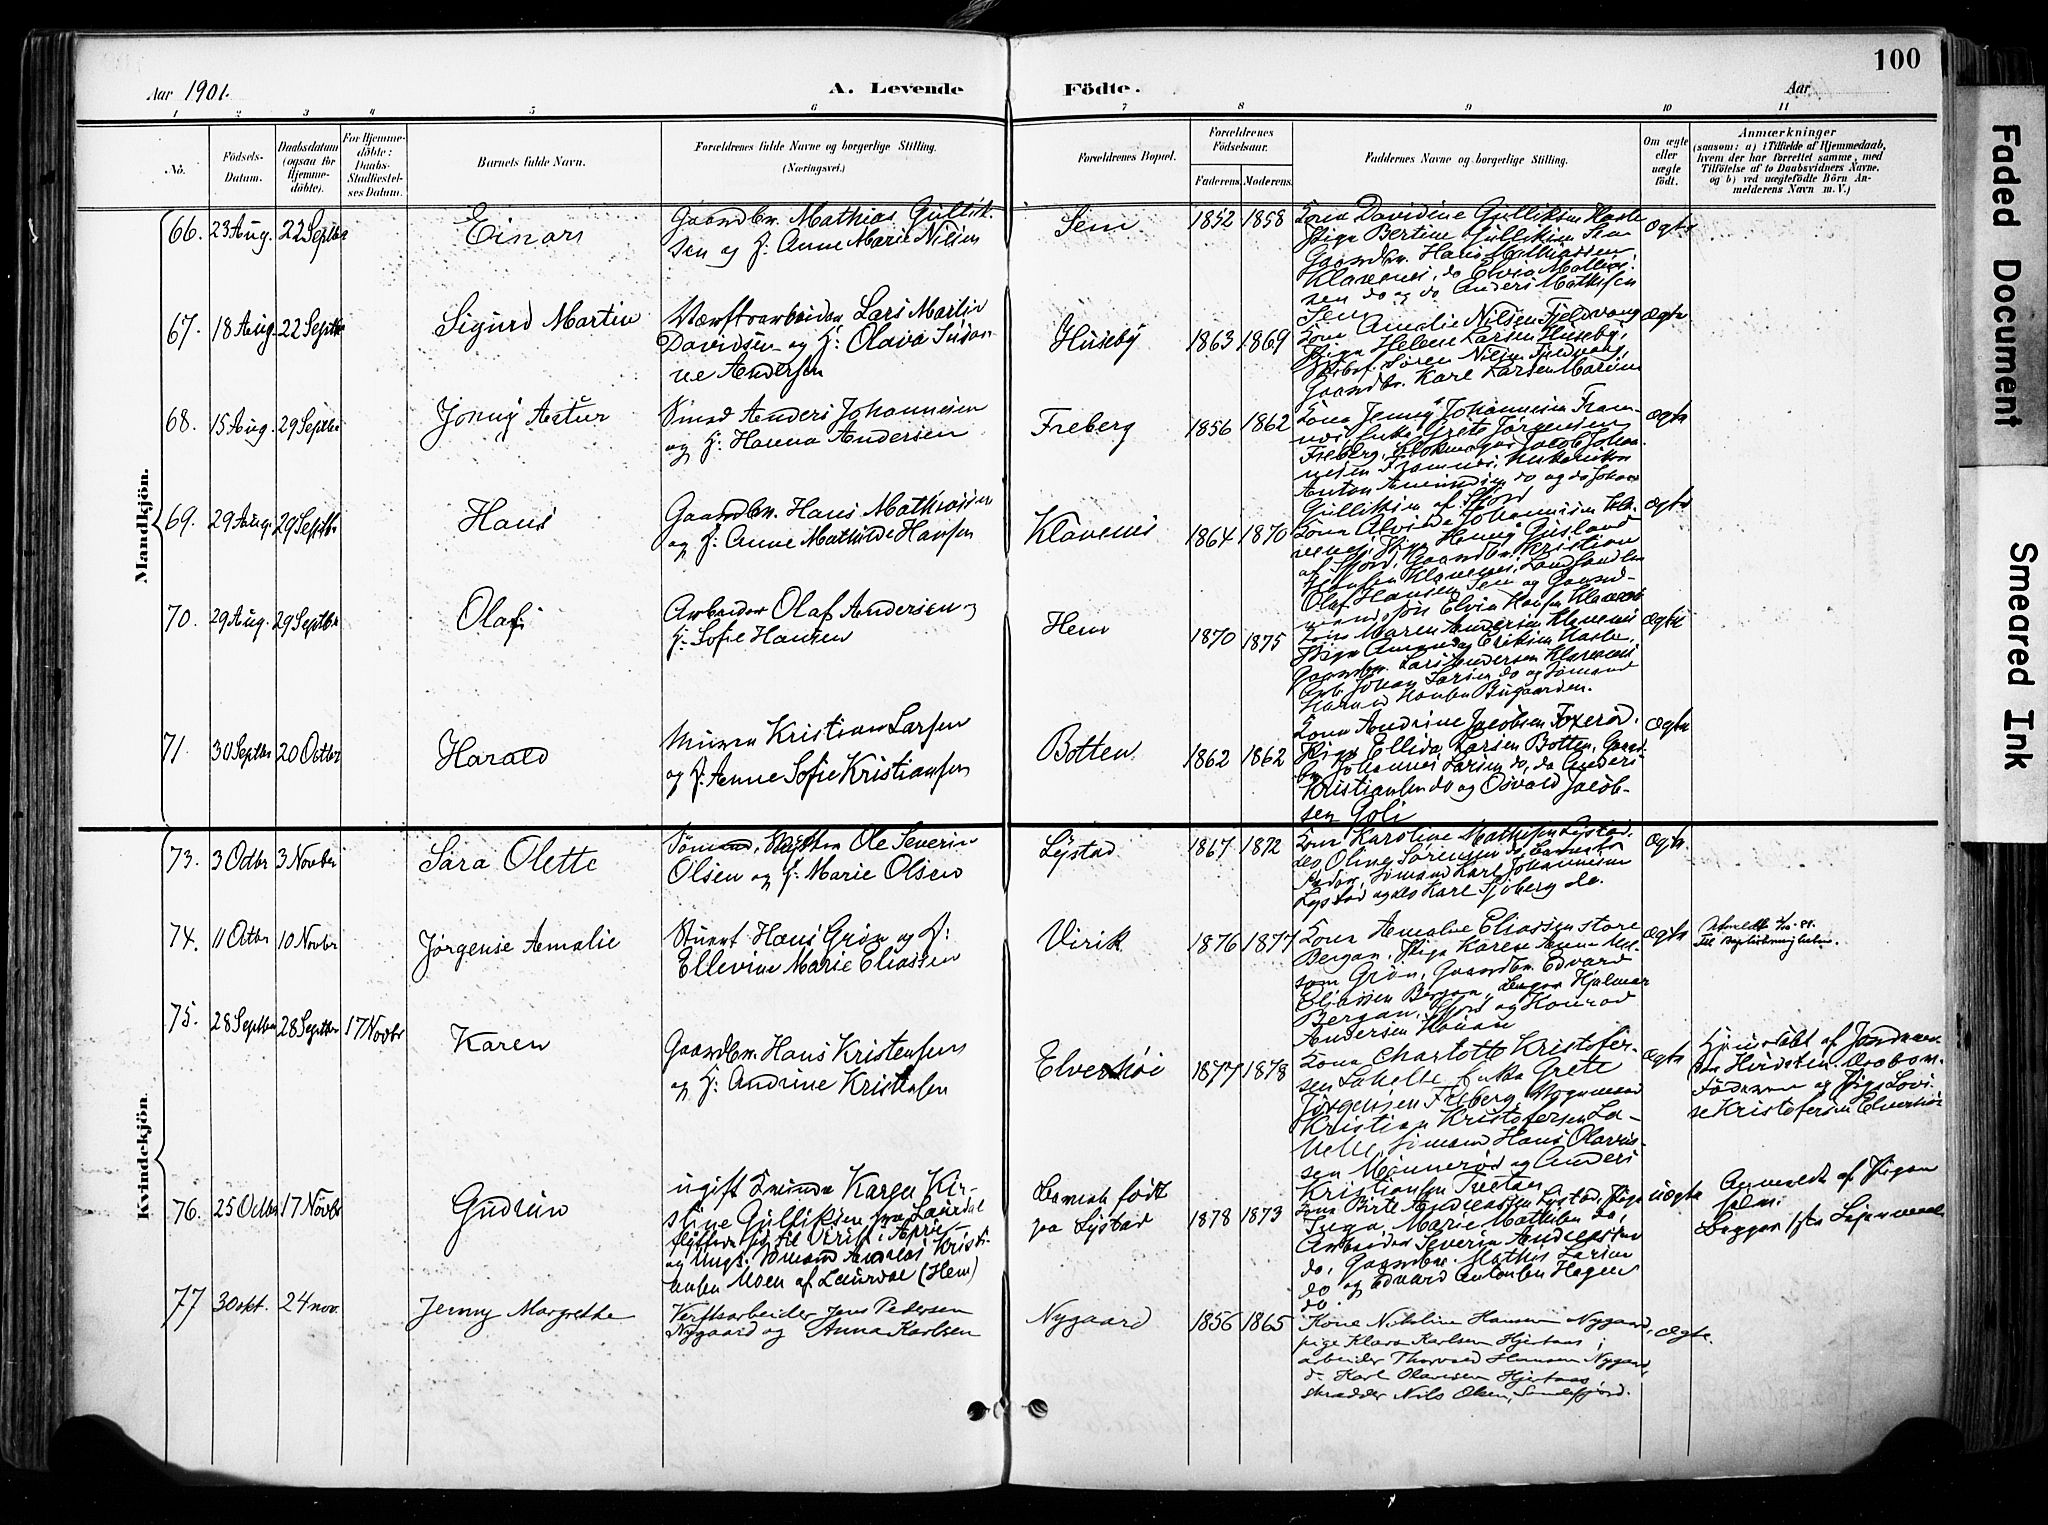 100
Aar 1901.
A. Levende Födte.
Aar
1 2 3 4 5 6 7 8 9 10 11
No.
Födsels-Datum.
Daabsdatum (ogsaa for Hjemmedöbte).
For Hjemmedöbte: Daabs-Stadfæstelses Datum.
Barnets fulde Navn.
Forældrenes fulde Navne og borgerlige Stilling. (Næringsvei.)
Forældrenes Bopæl.
Forældrenes Födselsaar.
Faderens. Moderens.
Faddernes Navne og borgerlige Stilling.
Om ægte eller uægte födt.
Anmærkninger
(saasom: a) i Tilfælde af Hjemmedaab, hvem der har forrettet samme, med Tilföielse af to Daabsvidners Navne, og b) ved uægtefödte Börn Anmelderens Navn m. V.)
Mandkjön.
66. 23 Aug. 22 Septbr Einar
Gaardbr. Mathias Gullik-
sen og H: Anne Marie Nilsen
Sem 1852 1858
Kona Davidine Gulliksen Hasle
Pige Bertine Gulliksen Sem
Gaardbr. Hans Mathiassen
Klavenes, do Elvin Mathis-
sen do og do Anders Mathisen
Sem
ægte
67. 18 Aug. 22 Septbr Sigurd Martin
Værftsarbeider Lars Martin
Davidsen og H: Olava Susan-
ne Andersen
Huseby 1863 1869
Kona Amalie Nilsen Fjeldvang
Pige Helene Larsen Huseby,
Søren Nilsen Fjeldvang,
Gaardbr. Karl Larsen Marum
ægte
68. 15 Aug. 29 Septbr Jonny Artur
Smed Anders Johannesen
og H: Hanna Andersen
Freberg 1856 1862
Kona Jenny Johannesen Fram-
nes, Enke Grete Jørgensen
Freberg, Jacob Johan-
nesen Framnes,
Anton do og do Johan
Gulliksen af Sfjord
ægte
69. 29 Aug. 29 Septbr Hans
Gaardbr. Hans Mathiassen
og H: Anne Mathilde Hansen
Klavenes 1864 1870
Kona Alvilde Johannesen Kla-
venes, Pige Henny Gusland
af Sfjord, Gaardbr. Kristian
Hansen Klavenes, Landhandler
Olaf Hansen Sem og Gaard-
mandssøn Elvin Hansen Klavenes
ægte
70. 29 Aug. 29 Septbr Olaf
Arbeider Olaf Andersen og
H: Sofie Hansen
Hem 1870 1875
Kona Maren Andersen Klavenes
Pige Amanda Eriksen Hasle,
Gaardbr. Lars Andersen Klavenes
Arb. Johan Larsen do og Sømand
Harald Hansen Bugaarden.
ægte
71. 30 Septbr 20 Octbr Harald
Murer Kristian Larsen
og H: Anne Sofie Kristiansen
Botten 1862 1862
Kona Andrine Jacobsen Foxerød,
Pige Ellida Larsen Botten, Gaard-
br. Johannes Larsen do, do Anders
Kristiansen do og Osvald Jacob-
sen Goli
ægte
Kvindekjön.
73. 3 Octbr 3 Novbr Sara Olette
Sømand, Ole Severin
Olsen og H: Marie Olsen
Lystad 1867 1872
Kona Karoline Mathisen Lystad,
do Oline Sørensen do, Barnets
Fader, Sømand Karl Johannesen
Lystad og do Karl Sjøberg do.
ægte
74. 11 Octbr 10 Novbr Jørgense Amalie
Stuert Hans Grøn og H:
Ellevine Marie Eliassen
Virik 1876 1877
Kona Amalie Eliassen store
Bergan, Pige Karen Anna
Grøn, Gaardbr. Edvard
Eliassen Bergan, Hjalmar
Bergan, Sfjord og Konrad
Andersen Hauan
ægte
75. 28 Septbr 28 Septbr 17 Novbr Karen
Gaardbr. Hans Kristensen
og H: Andrine Kristensen
Elverhøi 1877 1878
Kona Charlotte Kristofer-
sen Lahelle, Enke Grete
Jørgensen Freberg,
Kristian Kristofersen La-
helle, Sømand Hans Olavis-
sen Mannerød og Anders
Kristiansen
ægte
Hjemmedøbt af Jordmor
Hirdsten.
Faderen og Pige Lovi-
se Kristofersen Elverhøi
76. 25 Octbr 17 Novbr Gudrun
ugift Kvinde Karen Kir-
stine Gulliksen fra Laurdal
flyttede til Virik i April
og Ungk. Sømand Andreas Kristi-
ansen Moen af Laurdal (Hem)
Barnet født
pa Lystad
1878 1873
Kona Birte Andreassen Lystad, Pige
Marie Mathisen do,
Arbeider Severin Andreassen
do, Gaardbr. Mathis Larsen
do og Edvard Antonsen Hagen
do.
uægte
Anmeldt af Pigen
selv.
Begges 1ste Leiermaal
77 30 okt. 24 nov. Jenny Margrethe
Verftsarbeider Jens Pedersen
Nygaard og Anna Karlsen
Nygaard 1856 1865
Kone Nikoline Hansen Nygaard,
pige Klara Karlsen Hjertaas,
arbeider Thorvald Hansen Nygaard,
d. Karl Olavesen Hjertaas
skrædder Nils Olsen, Sandefjord.
ægte.
Faded Document
Smeared Ink